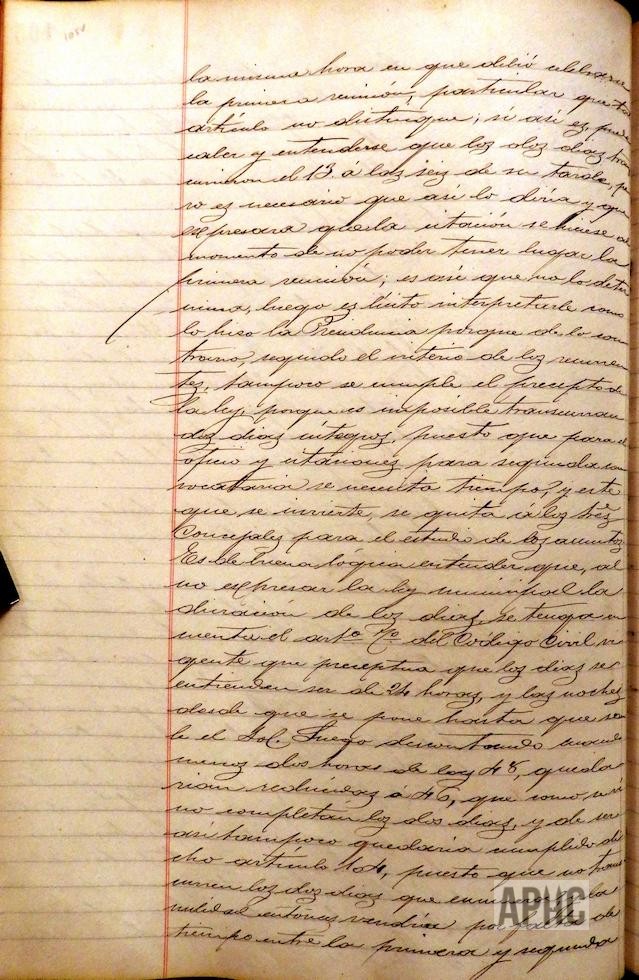 la misma hora en que debió celebrarse
la primera reunión, particular que tal
artículo no distingue; si así es, pudo
caber y entenderse que los dos dias trans
currieron el 13 á las seis de su tarde, pe
ro es necesario que así lo diria y que
expresara que la citación se hiciese al
momento de no poder tener lugar la
primera reunión; es así que no lo deter
mina, luego es lícito interpretarle como
lo hiso la Presidencia porque de lo con
trario, seguido el criterio de los recurren
tes, tampoco se cumple el precepto de
la ley, porque es imposible transcurran
dos dias íntegros, puesto que para el
oficio y citaciones para segunda con
vocatoria se necesita tiempo, y este
que se invierte, se quita á los tres
Concejales para el estudio de los asuntos
Es de buena lógica entender que, al
no expresar la ley municipal la
duración de los dias, se tenga en
cuenta el artº 7º del Código Civil vi
gente que preceptua que los dias se
entienden ser de 24 horas, y las noches
desde que se pone hasta que sa
le el Sol. Luego descontando cuando
menos dos horas de las 48, queda
rian reducidas á 46, que como se vé
no completan los dos dias, y de ser
así tampoco quedaria cumplido di
cho artículo 104, puesto que no trans
curren los dos dias que enumera la
nulidad entonces vendria por falta de
tiempo entre la primera y segunda
APHC